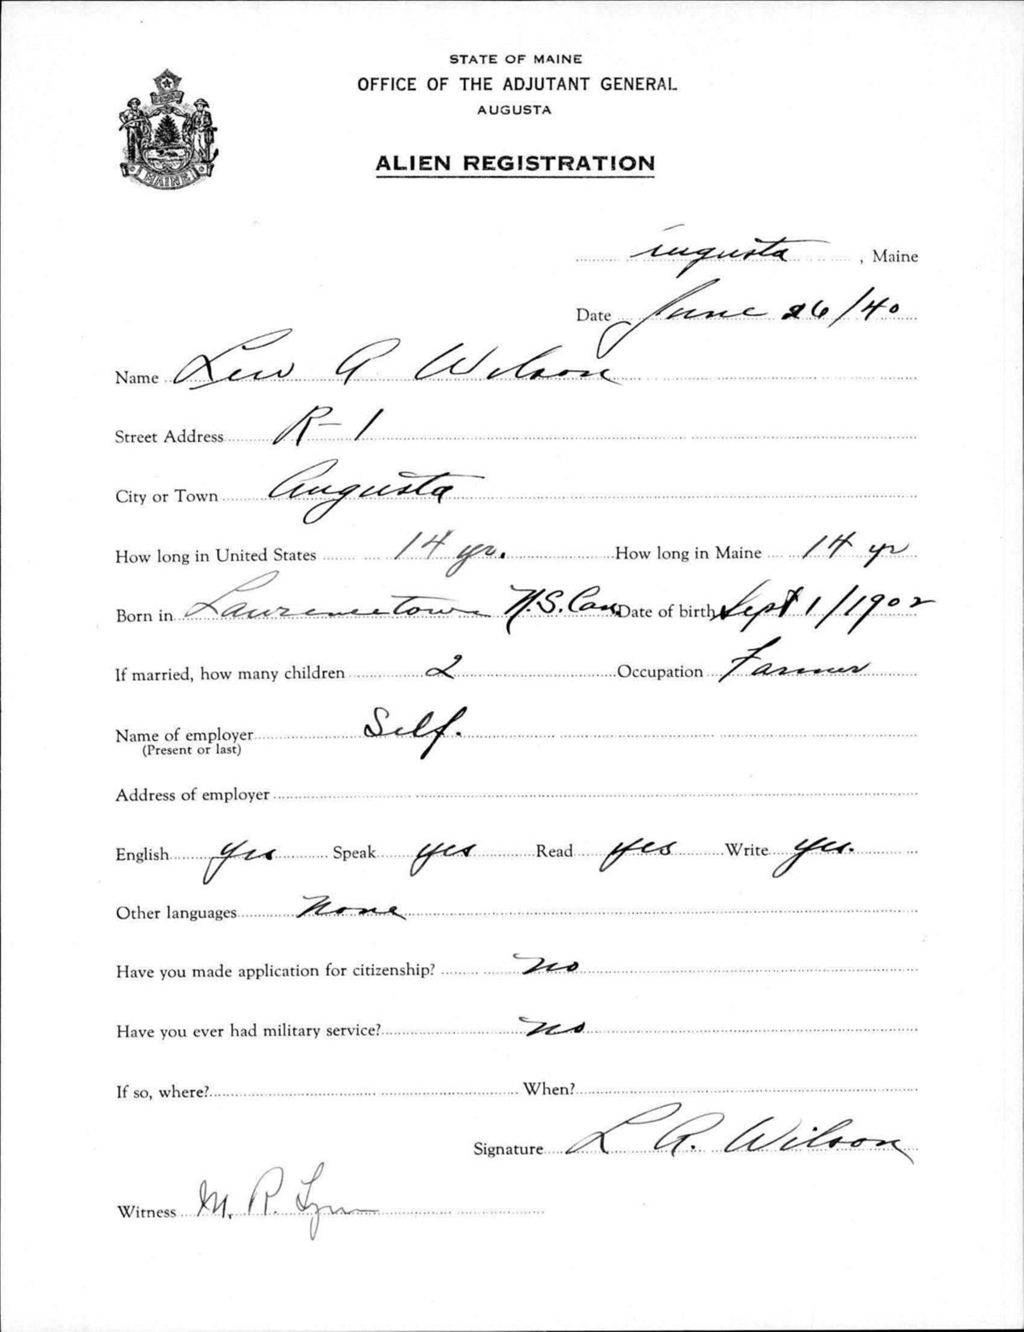 STATE OF MAINE
OFFICE OF THE ADJUTANT GENERAL
AUGUSTA
ALIEN REGISTRATION
MAINE
Augusta, Maine
Date June 26/40
Name Lew A Wilson
Street Address R-1
City or Town Augusta
How long in United States 14 yr. How long in Maine 14 yr
Born in Lawrencetown N.S. Can Date of birth Sept 1/1902
If married, how many children 2 Occupation Farmer
Name of employer Self.
(Present or last)
Address of employer
English yes Speak yes Read yes Write yes.
Other languages None
Have you made application for citizenship? no
Have you ever had military service? no
If so, where? When?
Signature L A. Wilson
Witness M. R. Lynn